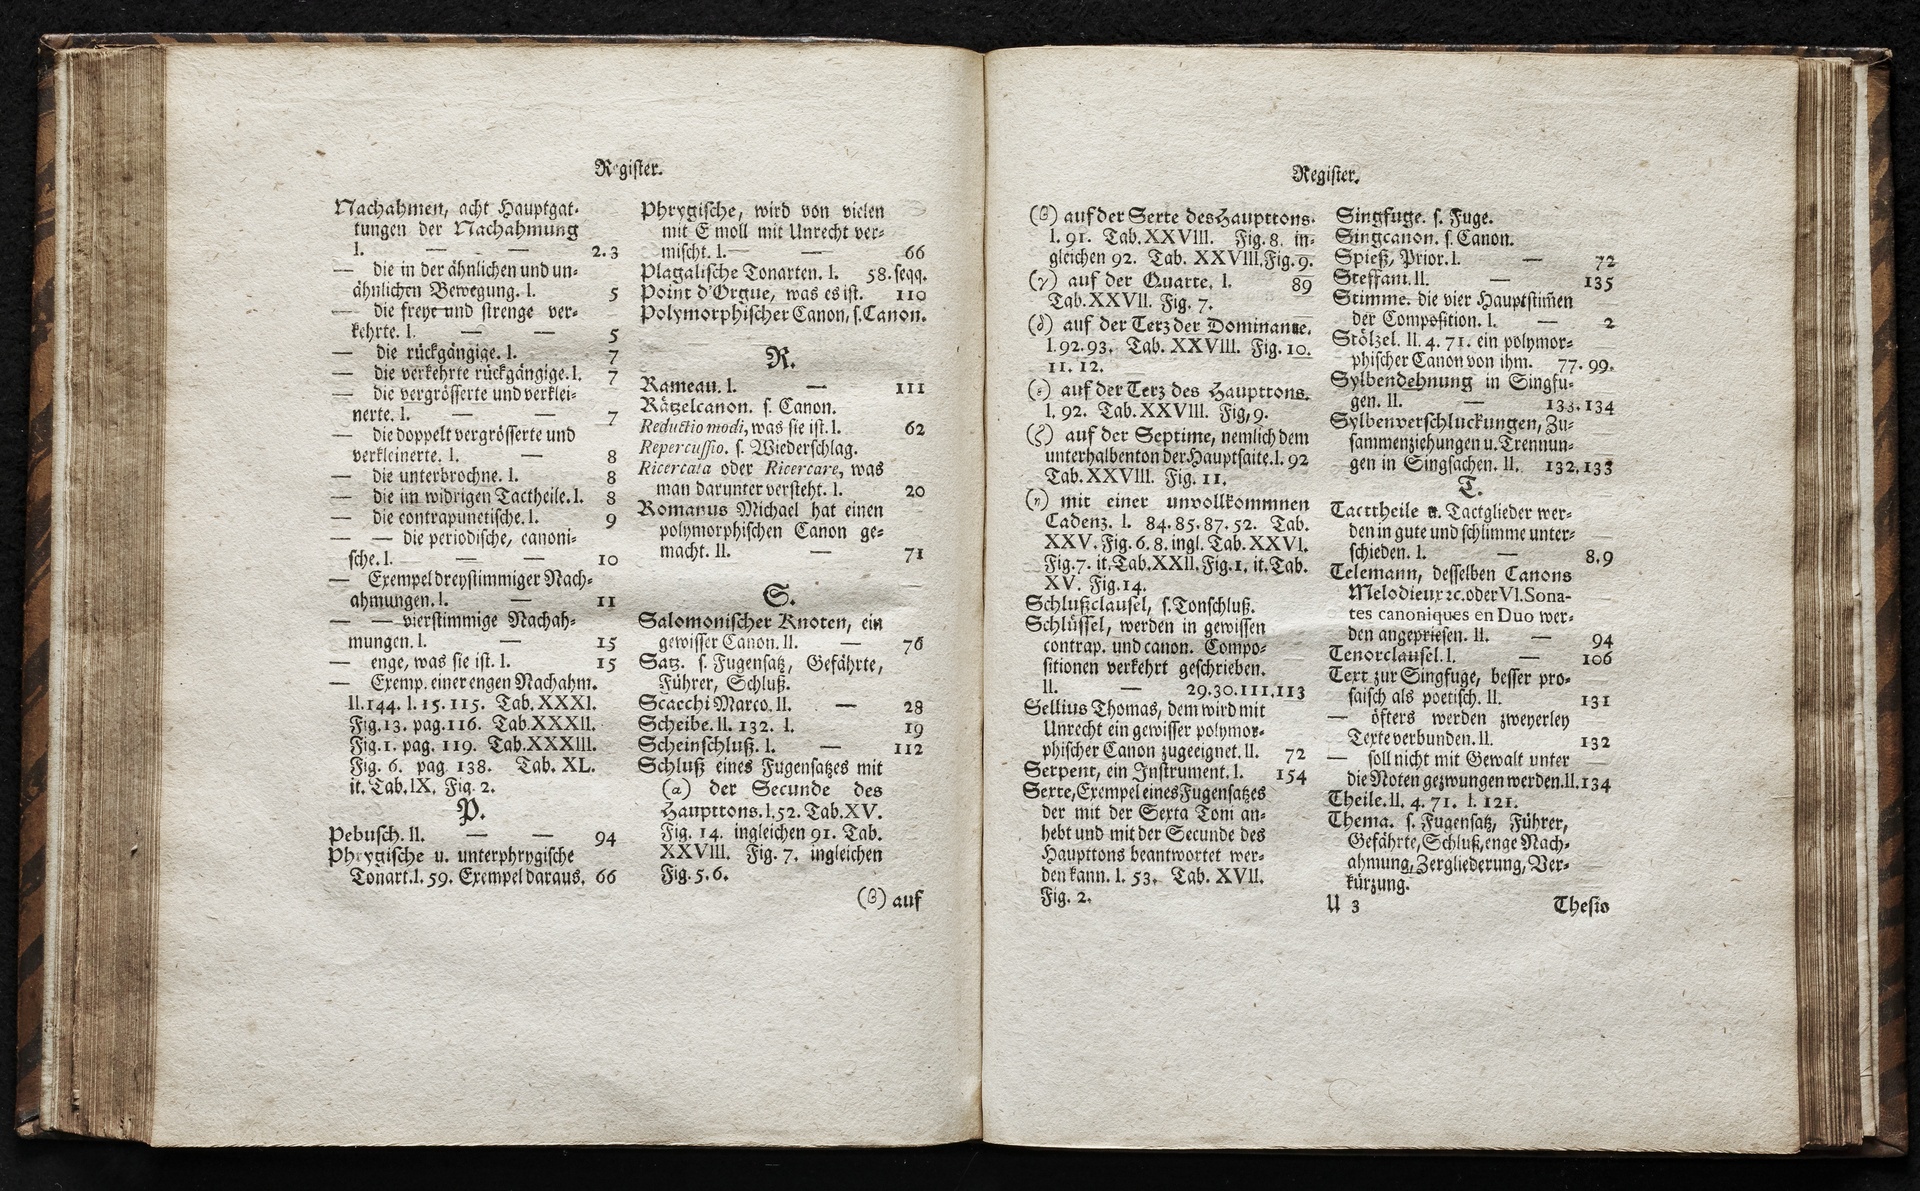 Register.
Nachahmen, acht Hauptgat-
tungen der Nachahmung
I. — — 2.3
— die in der ähnlichen und un-
ähnlichen Bewegung. I. 5
— die freye und strenge ver-
kehrte. I. — — 5
— die rückgängige. I. 7
— die verkehrte rückgängige. I. 7
— die vergrösserte und verklei-
nerte. I. — — 7
— die doppelt vergrösserte und
verkleinerte. I. — 8
— die unterbrochne. I. 8
— die im widrigen Tacttheile. I. 8
— die contrapunctische. I. 9
— — die periodische, canoni-
sche. I. — — 10
— Exempel dreystimmiger Nach-
ahmungen. I. — 11
— — vierstimmige Nachah-
mungen. I. — 15
— enge, was sie ist. I. 15
— Exemp. einer engen Nachahm.
II. 144. I. 15. 115. Tab. XXXI.
Fig. 13. pag. 116. Tab. XXXII.
Fig. 1. pag. 119. Tab. XXXIII.
Fig. 6. pag. 138. Tab. XL.
it. Tab. IX. Fig. 2.
P.
Pebusch. II. — — 94
Phrygische u. unterphrygische
Tonart. I. 59. Exempel daraus. 66
Phrygische, wird von vielen
mit E moll mit Unrecht ver-
mischt. I. — — 66
Plagalische Tonarten. I. 58. seqq.
Point d'Orgue, was es ist. 110
Polymorphischer Canon, s. Canon.
R.
Rameau. I. — 111
Rätzelcanon. s. Canon.
Reductio modi, was sie ist. I. 62
Repercussio. s. Wiederschlag.
Ricercata oder Ricercare, was
man darunter versteht. I. 20
Romanus Michael hat einen
polymorphischen Canon ge-
macht. II. — 71
S.
Salomonischer Knoten, ein
gewisser Canon. II. — 76
Satz. s. Fugensatz, Gefährte,
Führer, Schluß.
Scacchi Marco. II. — 28
Scheibe. II. 132. I. 19
Scheinschluß. I. — 112
Schluß eines Fugensatzes mit
(α) der Secunde des
Haupttons. I. 52. Tab. XV.
Fig. 14. ingleichen 91. Tab.
XXVIII. Fig. 7. ingleichen
Fig. 5. 6.
(β) auf
Register.
(β) auf der Sexte des Haupttons.
I. 91. Tab. XXVIII. Fig. 8. in-
gleichen 92. Tab. XXVIII. Fig. 9.
(γ) auf der Quarte. I. 89
Tab. XXVII. Fig. 7.
(δ) auf der Terz der Dominante.
I. 92. 93. Tab. XXVIII. Fig. 10.
11. 12.
(ε) auf der Terz des Haupttons.
I. 92. Tab. XXVIII. Fig, 9.
(ζ) auf der Septime, nemlich dem
unterhalbenton der Hauptsaite. I. 92
Tab. XXVIII. Fig. 11.
(η) mit einer unvollkommnen
Cadenz. I. 84. 85. 87. 52. Tab.
XXV. Fig. 6. 8. ingl. Tab. XXVI.
Fig. 7. it. Tab. XXII. Fig. 1. it. Tab.
XV. Fig. 14.
Schlußclausel, s. Tonschluß.
Schlüssel, werden in gewissen
contrap. und canon. Compo-
sitionen verkehrt geschrieben.
II. — 29. 30. 111. 113
Sellius Thomas, dem wird mit
Unrecht ein gewisser polymor-
phischer Canon zugeeignet. II. 72
Serpent, ein Instrument. I. 154
Sexte, Exempel eines Fugensatzes
der mit der Sexta Toni an-
hebt und mit der Secunde des
Haupttons beantwortet wer-
den kann. I. 53. Tab. XVII.
Fig. 2.
Singfuge. s. Fuge.
Singcanon. s. Canon.
Spieß, Prior. I. — 72
Steffani. II. — 135
Stimme. die vier Hauptstim̄en
der Composition. I. — 2
Stölzel. II. 4. 71. ein polymor-
phischer Canon von ihm. 77. 99.
Sylbendehnung in Singfu-
gen. II. — 133. 134
Sylbenverschluckungen, Zu-
sammenziehungen u. Trennun-
gen in Singsachen. II. 132. 133
T.
Tacttheile u. Tactglieder wer-
den in gute und schlimme unter-
schieden. I. — 8. 9
Telemann, desselben Canons
Melodieux ꝛc. oder VI. Sona-
tes canoniques en Duo wer-
den angepriesen. II. — 94
Tenorclausel. I. — 106
Text zur Singfuge, besser pro-
saisch als poetisch. II. 131
— öfters werden zweyerley
Texte verbunden. II. 132
— soll nicht mit Gewalt unter
die Noten gezwungen werden. II. 134
Theile. II. 4. 71. I. 121.
Thema. s. Fugensatz, Führer,
Gefährte, Schluß, enge Nach-
ahmung, Zergliederung, Ver-
kürzung.
U 3 Thesis